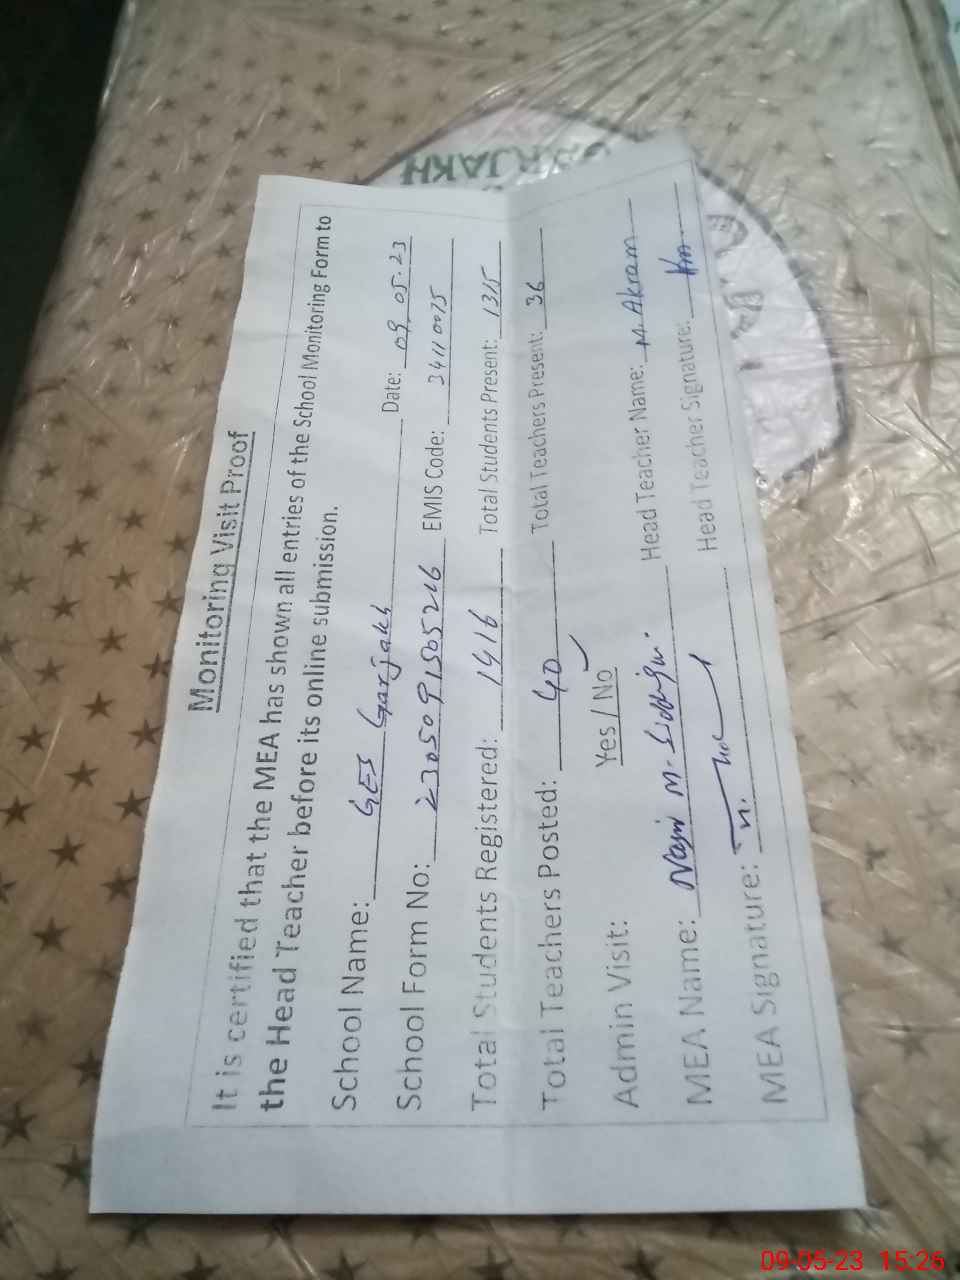 Monitoring Visit Proof
It is certified that the MEA has shown all entries of the School Monitoring Form to
the Head Teacher before its online submission.
School Name: GES Garjakh Date: 09.05.23
School Form No: 2305091505216 EMIS Code: 34110075
Total Students Registered: 1416 Total Students Present: 1315
Total Teachers Posted: 40 Total Teachers Present: 36
Admin Visit: Yes / No ✓
MEA Name: M. Siddiqui. Head Teacher Name: M. Akram
MEA Signature: Head Teacher Signature:
GARJAKH
09-05-23 15:26